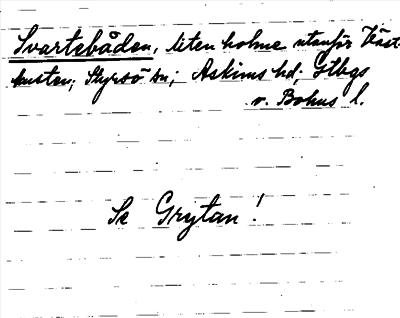 Svartebåden, liten holme utanför Väst-
kusten; Styrsö sn; Askims hd; Gtbgs
o. Bohus l.
Se Grytan!